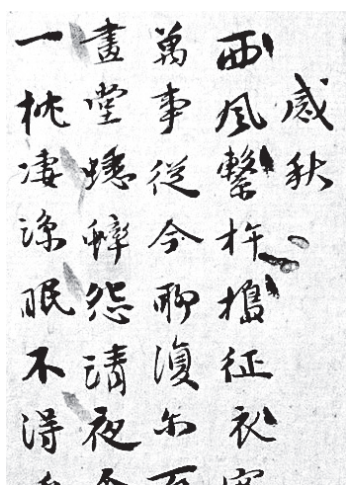 感秋
西風繫杵搗征衣客
萬事從今聊復尔百
畫堂蟋蟀怨清夜金
一枕凄涼眠不得